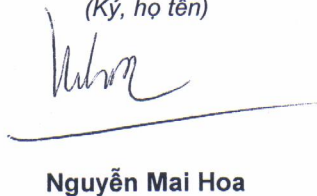 (Ký, họ tên)
Nguyễn Mai Hoa